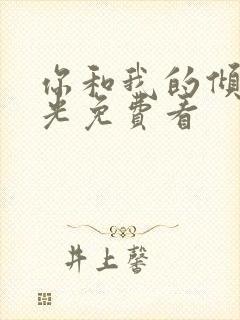 你和我的倾
光免費看
井上馨